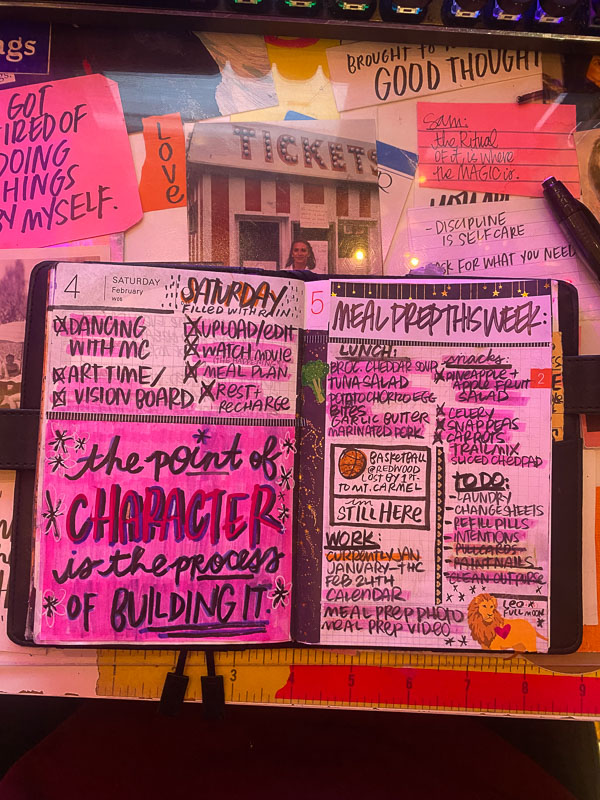 gs
GOT
TIRED OF
DOING
THINGS
BY MYSELF.
LOVE
TICKETS
BROUGHT TO
GOOD THOUGHT
Sam:
the Ritual
of it is where
the MAGIC is.
- DISCIPLINE
IS SELFCARE
ASK FOR WHAT YOU NEED
4
SATURDAY
February
SATURDAY
FILLED WITH RAIN
DANCING
WITH MC
ART TIME/
VISION BOARD
UPLOAD/EDIT
WATCH MOVIE
MEAL PLAN
REST+
RECHARGE
the point of
CHARACTER
is the process
OF BUILDING IT.
5
MEAL PREP THIS WEEK:
LUNCH:
BROC. CHEDDAR SOUP
TUNA SALAD
POTATO CHORIZO EGG
BITES
GARLIC BUTTER
MARINATED PORK
snacks:
PINEAPPLE +
APPLE FRUIT
SALAD
CELERY
SNAP PEAS
CARROTS
TRAIL MIX
SLICED CHEDDAR
2
BASKETBALL
@REDWOOD
LOST BY 1 PT.
TO MT. CARMEL
im
STILL HERE
WORK:
CURRENTLY JAN
JANUARY - THC
FEB 24TH
CALENDAR
MEAL PREP PHOTO
MEAL PREP VIDEO
TO DO:
- LAUNDRY
- CHANGE SHEETS
- REFILL PILLS
- INTENTIONS
- PULL CARDS
- PAINT NAILS
- CLEAN OUT PURSE
LEO
FULL MOON
3
5
6
7
8
9